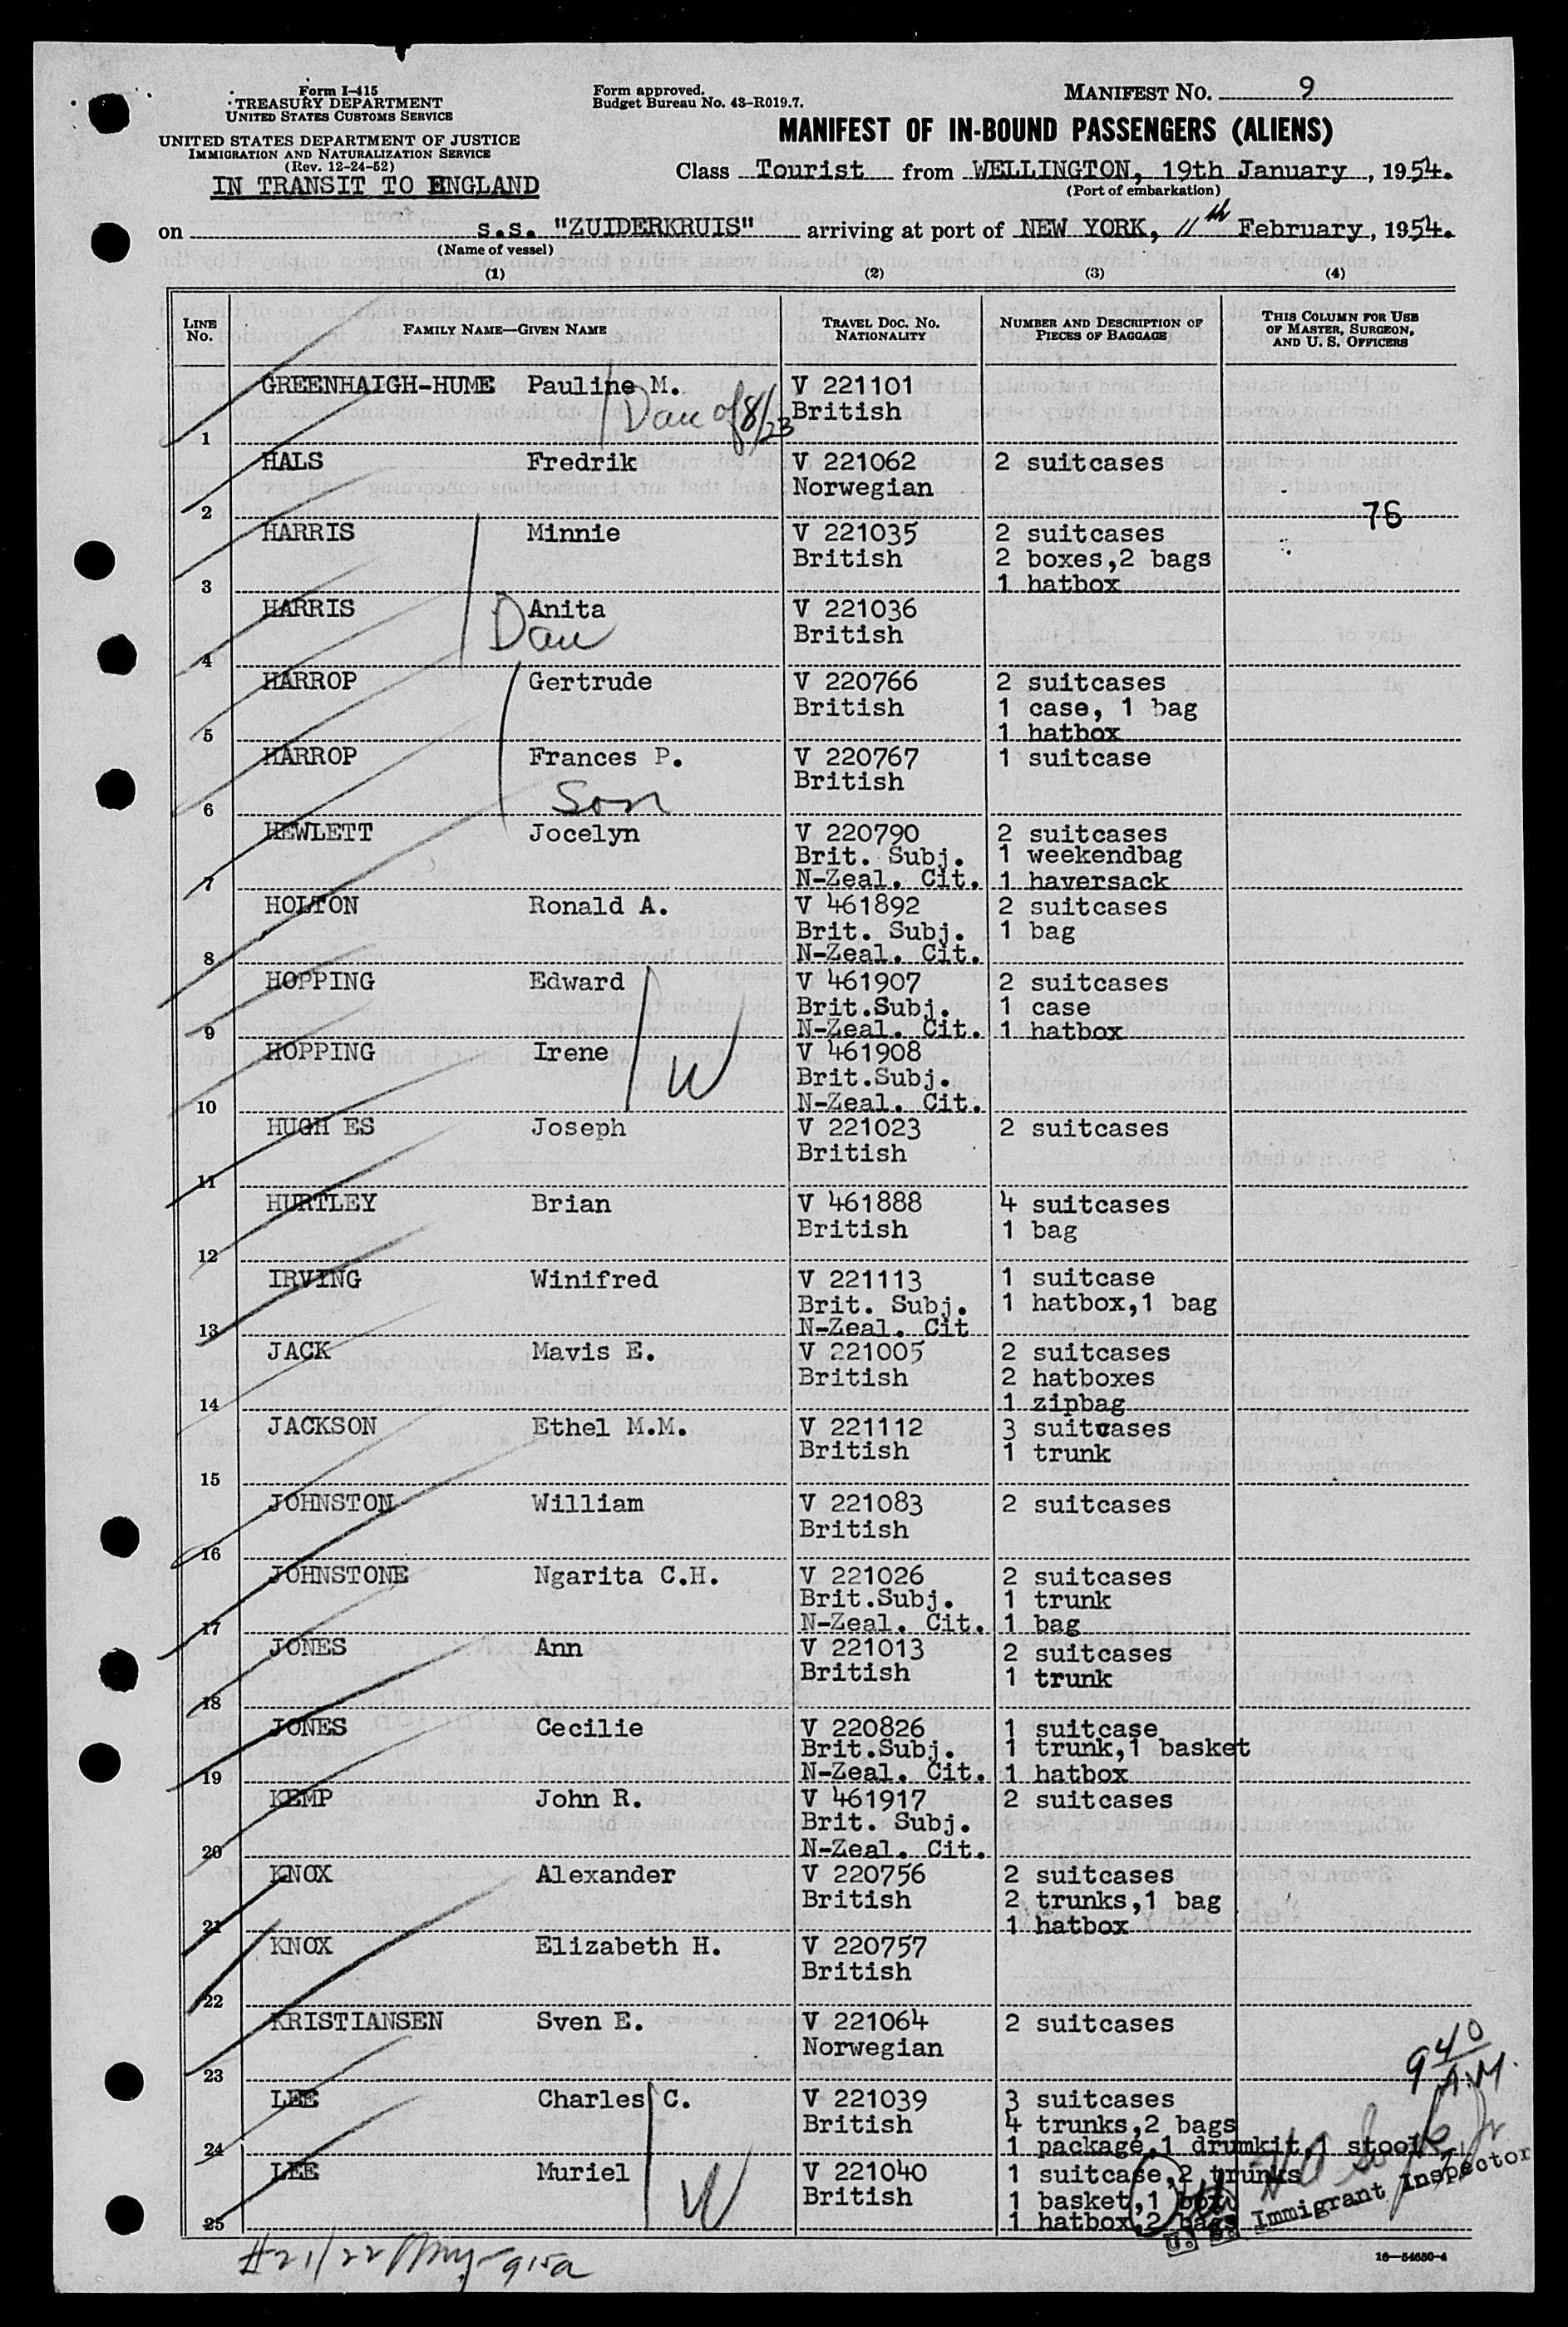 Form I-415
TREASURY DEPARTMENT
UNITED STATES CUSTOMS SERVICE
UNITED STATES DEPARTMENT OF JUSTICE
IMMIGRATION AND NATURALIZATION SERVICE
(Rev. 12-24-52)
IN TRANSIT TO ENGLAND
Form approved.
Budget Bureau No. 43-R019.7.
MANIFEST NO. 9
MANIFEST OF IN-BOUND PASSENGERS (ALIENS)
Class Tourist from WELLINGTON, 19th January, 1954.
(Port of embarkation)
on s.s. "ZUIDERKRUIS" arriving at port of NEW YORK, 11th February, 1954.
(Name of vessel)
(1) (2) (3) (4)
LINE NO. FAMILY NAME—GIVEN NAME TRAVEL DOC. NO. NATIONALITY NUMBER AND DESCRIPTION OF PIECES OF BAGGAGE THIS COLUMN FOR USE OF MASTER, SURGEON, AND U. S. OFFICERS
GREENHAIGH-HUME Pauline M. V 221101
Dau of 8/23 British
1
HALS Fredrik V 221062 2 suitcases
Norwegian
2 76
HARRIS Minnie V 221035 2 suitcases
British 2 boxes,2 bags
3 1 hatbox
HARRIS Anita V 221036
Dau British
4
HARROP Gertrude V 220766 2 suitcases
British 1 case, 1 bag
5 1 hatbox
HARROP Frances P. V 220767 1 suitcase
British
6 Son
HEWLETT Jocelyn V 220790 2 suitcases
Brit. Subj. 1 weekendbag
7 N-Zeal. Cit. 1 haversack
HOLTON Ronald A. V 461892 2 suitcases
Brit. Subj. 1 bag
8 N-Zeal. Cit.
HOPPING Edward V 461907 2 suitcases
Brit.Subj. 1 case
9 N-Zeal. Cit. 1 hatbox
HOPPING Irene V 461908
W Brit.Subj.
10 N-Zeal. Cit.
HUGH ES Joseph V 221023 2 suitcases
British
11
HURTLEY Brian V 461888 4 suitcases
British 1 bag
12
IRVING Winifred V 221113 1 suitcase
Brit. Subj. 1 hatbox,1 bag
13 N-Zeal. Cit
JACK Mavis E. V 221005 2 suitcases
British 2 hatboxes
14 1 zipbag
JACKSON Ethel M.M. V 221112 3 suitcases
British 1 trunk
15
JOHNSTON William V 221083 2 suitcases
British
16
JOHNSTONE Ngarita C.H. V 221026 2 suitcases
Brit.Subj. 1 trunk
17 N-Zeal. Cit. 1 bag
JONES Ann V 221013 2 suitcases
British 1 trunk
18
JONES Cecilie V 220826 1 suitcase
Brit.Subj. 1 trunk,1 basket
19 N-Zeal. Cit. 1 hatbox
KEMP John R. V 461917 2 suitcases
Brit. Subj.
20 N-Zeal. Cit.
KNOX Alexander V 220756 2 suitcases
British 2 trunks,1 bag
21 1 hatbox
KNOX Elizabeth H. V 220757
British
22
KRISTIANSEN Sven E. V 221064 2 suitcases
Norwegian
23 940 A.M.
LEE Charles C. V 221039 3 suitcases
British 4 trunks,2 bags
24 1 package,1 drumkit,1 stool
LEE Muriel V 221040 1 suitcase,2 trunks
W British 1 basket,1 box
25 1 hatbox,2 bags
U. S. Immigrant Inspector
#21/22 915a
16—54650-4